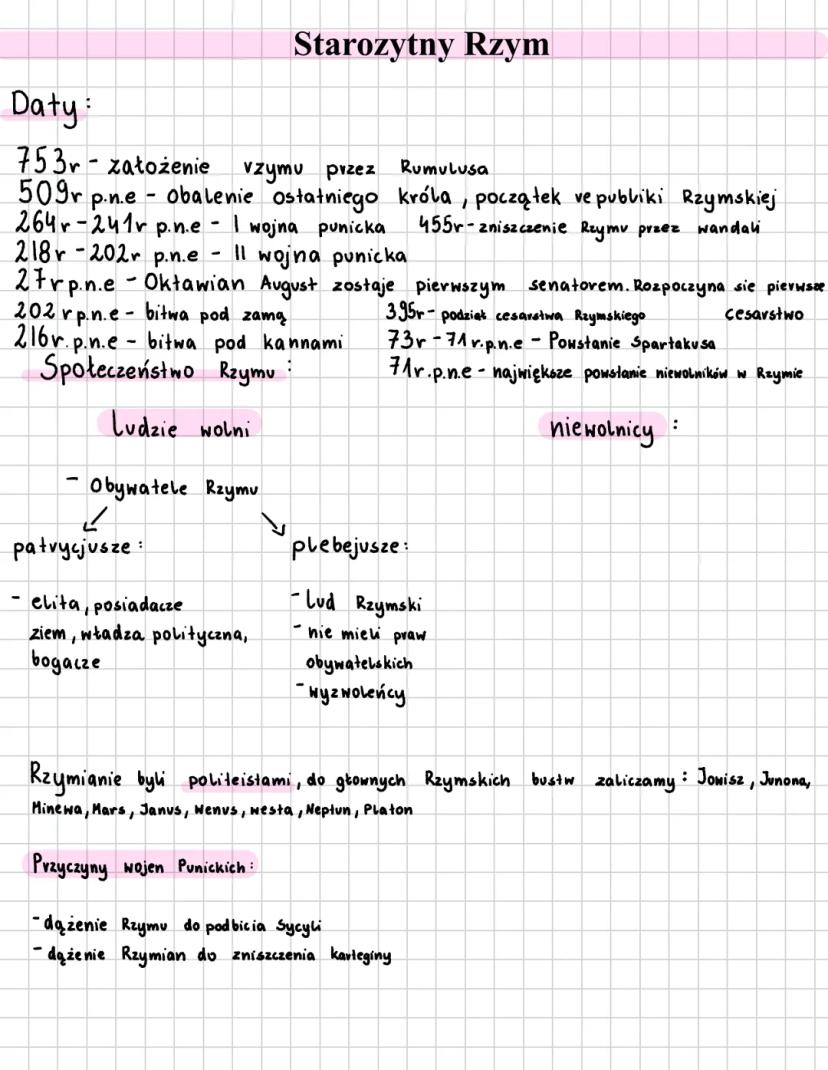 Starozytny Rzym
Daty:
753r - założenie rzymu przez Rumulusa
509r p.n.e - obalenie ostatniego króla, początek republiki Rzymskiej
264r-241r p.n.e - I wojna punicka 455r-zniszczenie Rzymu przez wandali
218r-202r p.n.e - II wojna punicka
27r p.n.e - Oktawian August zostaje pierwszym senatorem. Rozpoczyna sie pierwsze
202r p.n.e - bitwa pod zamą 395r- podział cesarstwa Rzymskiego cesarstwo
216r. p.n.e - bitwa pod kannami 73r-71r.p.n.e - Powstanie Spartakusa
Społeczeństwo Rzymu: 71r.p.n.e - największe powstanie niewolników w Rzymie
Ludzie wolni niewolnicy:
- Obywatele Rzymu
patrycjusze: plebejusze:
- elita, posiadacze - Lud Rzymski
ziem, władza polityczna, - nie mieli praw
bogacze obywatelskich
- wyzwoleńcy
Rzymianie byli politeistami, do głownych Rzymskich bustw zaliczamy: Jowisz, Junona,
Minewa, Mars, Janus, Wenus, westa, Neptun, Platon
Przyczyny wojen Punickich:
- dążenie Rzymu do podbicia Sycyli
- dążenie Rzymian do zniszczenia karteginy